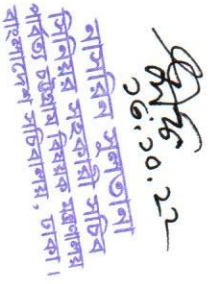 ২৬.১০.২২
নাসরিন সুলতানা
সিনিয়র সহকারী সচিব
পার্বত্য চট্টগ্রাম বিষয়ক মন্ত্রণালয়
বাংলাদেশ সচিবালয়, ঢাকা।